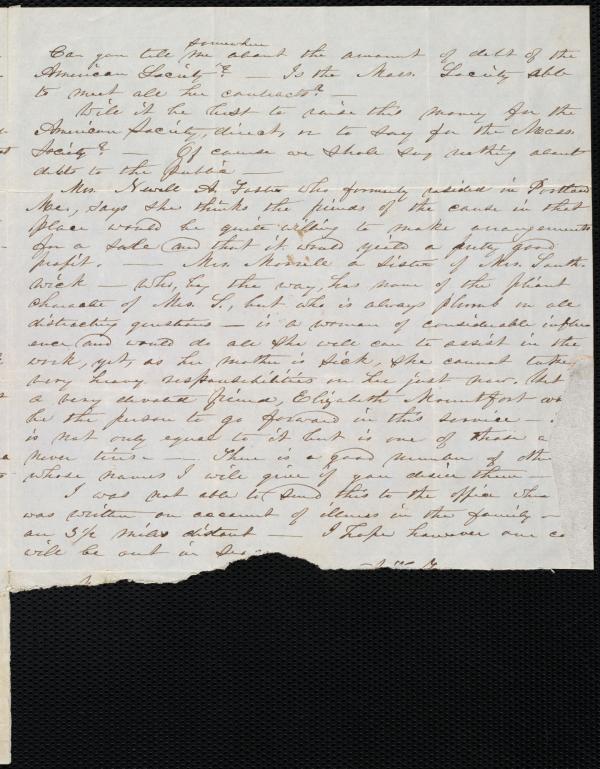 somewhere
Can you tell me about the amount of debt of the
American Society? — Is the Mass. Society able
to meet all her contracts? —
Will it be best to raise this money for the
American Society, direct, or to say for the Mass.
Society? — Of course we shall say nothing about
debts to the public —
Mrs. Newell A. Foster who formerly resided in Portland
Me., says she thinks the friends of the cause in that
place would be quite willing to make arrangements
for a sale and that it would yield a pretty good
profit. — Mrs. Morrill a sister of Mrs. South-
wick — who, by the way, has none of the pliant
character of Mrs. S., but who is always plumb on all
distracting questions — is a woman of considerable influ
ence and would do all she well can to assist in the
work, yet, as her mother is sick, she cannot take
very heavy responsibilities on her just now. But
a very devoted friend, Elizabeth Mountfort wo
be the person to go forward in this service —
is not only equal to it but is one of those
never tires. — There is a good number of othe
whose names I will give if you desire them —
I was not able to send this to the office when
was written on account of illness in the family —
are 3½ miles distant — I hope however our co
will be out in